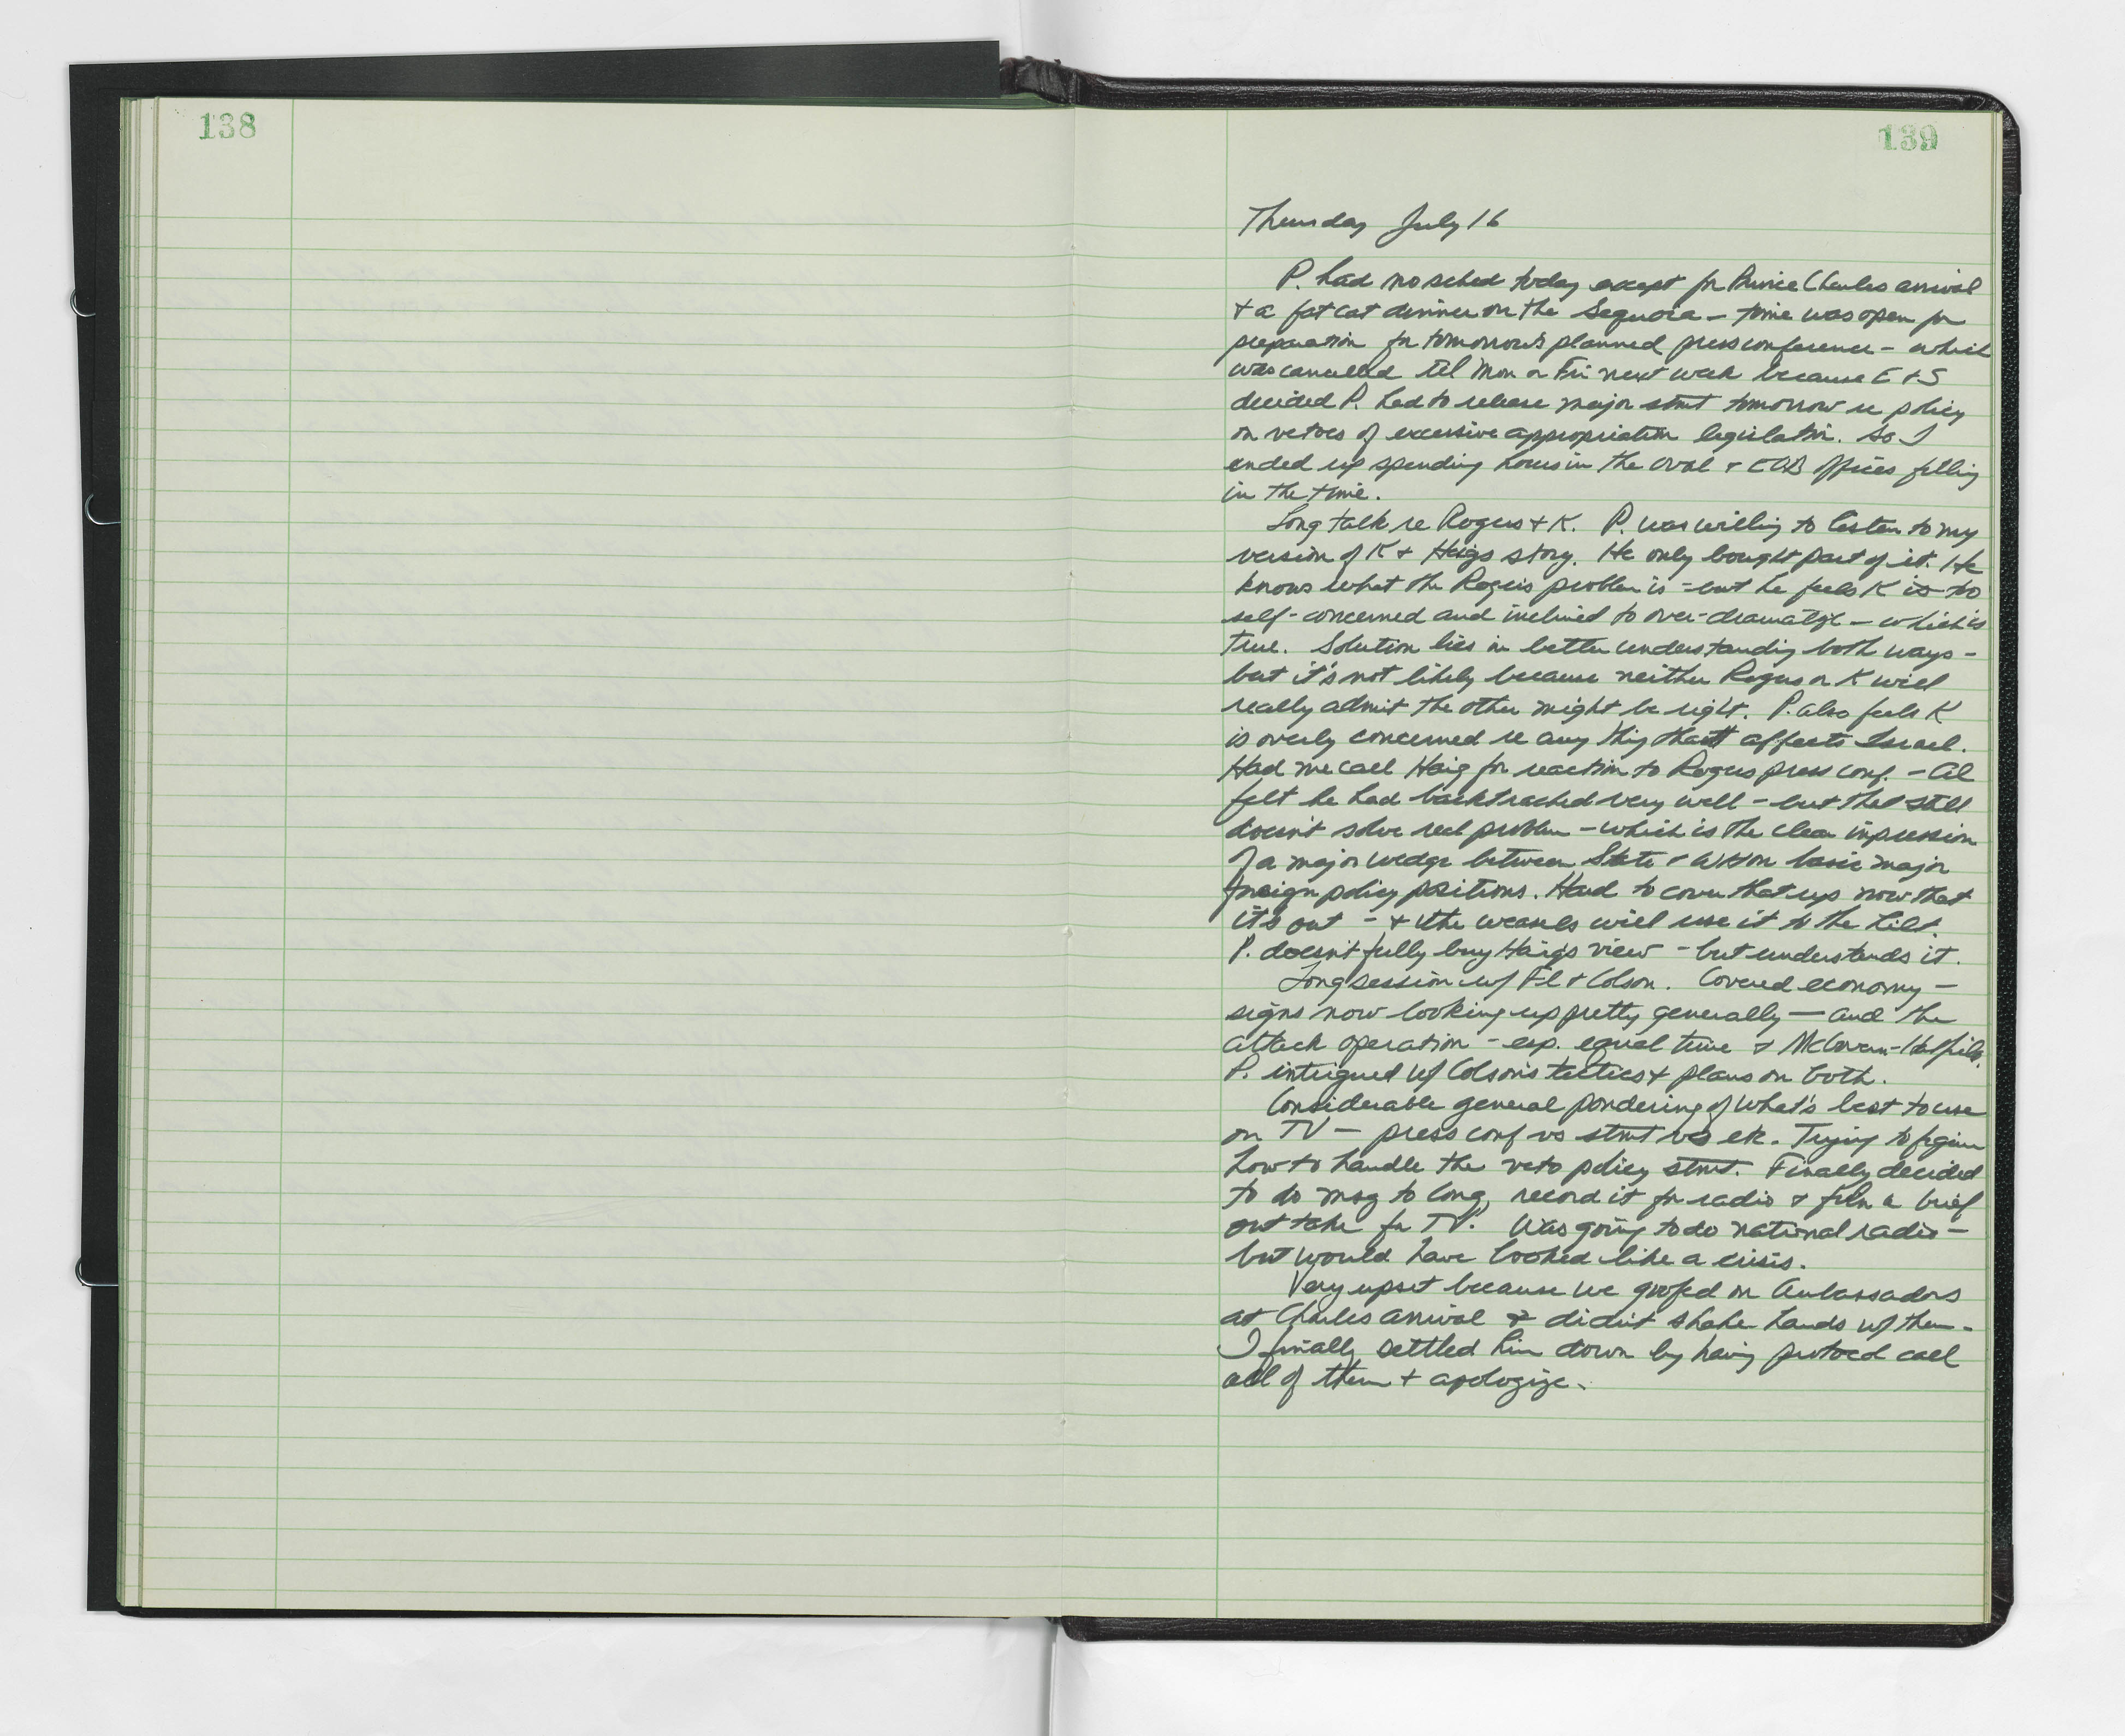 138
139
Thursday July 16
P. had no sched today except for Prince Charles arrival
+ a fat cat dinner on the Sequoia - time was open for
preparation for tomorrow's planned press conference - which
was cancelled til Mon or Fri next week because E + S
decided P. had to release major stmt tomorrow re policy
on vetoes of excessive appropriation legislation. So I
ended up spending hours in the Oval + EOB offices filling
in the time.
Long talk re Rogers + K. P. was willing to listen to my
version of K + Haigs story. He only bought part of it. He
knows what the Rogers problem is - but he feels K is too
self-concerned and inclined to over-dramatize - which is
true. Solution lies in better understanding both ways -
but it's not likely because neither Rogers or K will
really admit the other might be right. P. also feels K
is overly concerned re any thing that affects Israel.
Had me call Haig for reaction to Rogers press conf. - Al
felt he had backtracked very well - but that still
doesn't solve real problem - which is the clear impression
of a major wedge between State + WH on basic major
foreign policy positions. Hard to cover that up now that
it's out - + the weasels will use it to the hilt.
P. doesn't fully buy Haig's view - but understands it.
Long session w/ Fl + Colson. Covered economy -
signs now looking up pretty generally - and the
attack operation - esp. equal time + McGovern-Hatfield.
P. intrigued w/ Colson's tactics + plans on both.
Considerable general pondering of what's best to use
on TV - press conf vs stmt vs etc. Trying to figure
how to handle the veto policy stmt. Finally decided
to do msg to Cong, record it for radio + film a brief
out take for TV. Was going to do national radio -
but would have looked like a crisis.
Very upset because we goofed on Ambassadors
at Charles arrival + didn't shake hands w/ them.
I finally settled him down by having protocol call
all of them + apologize.